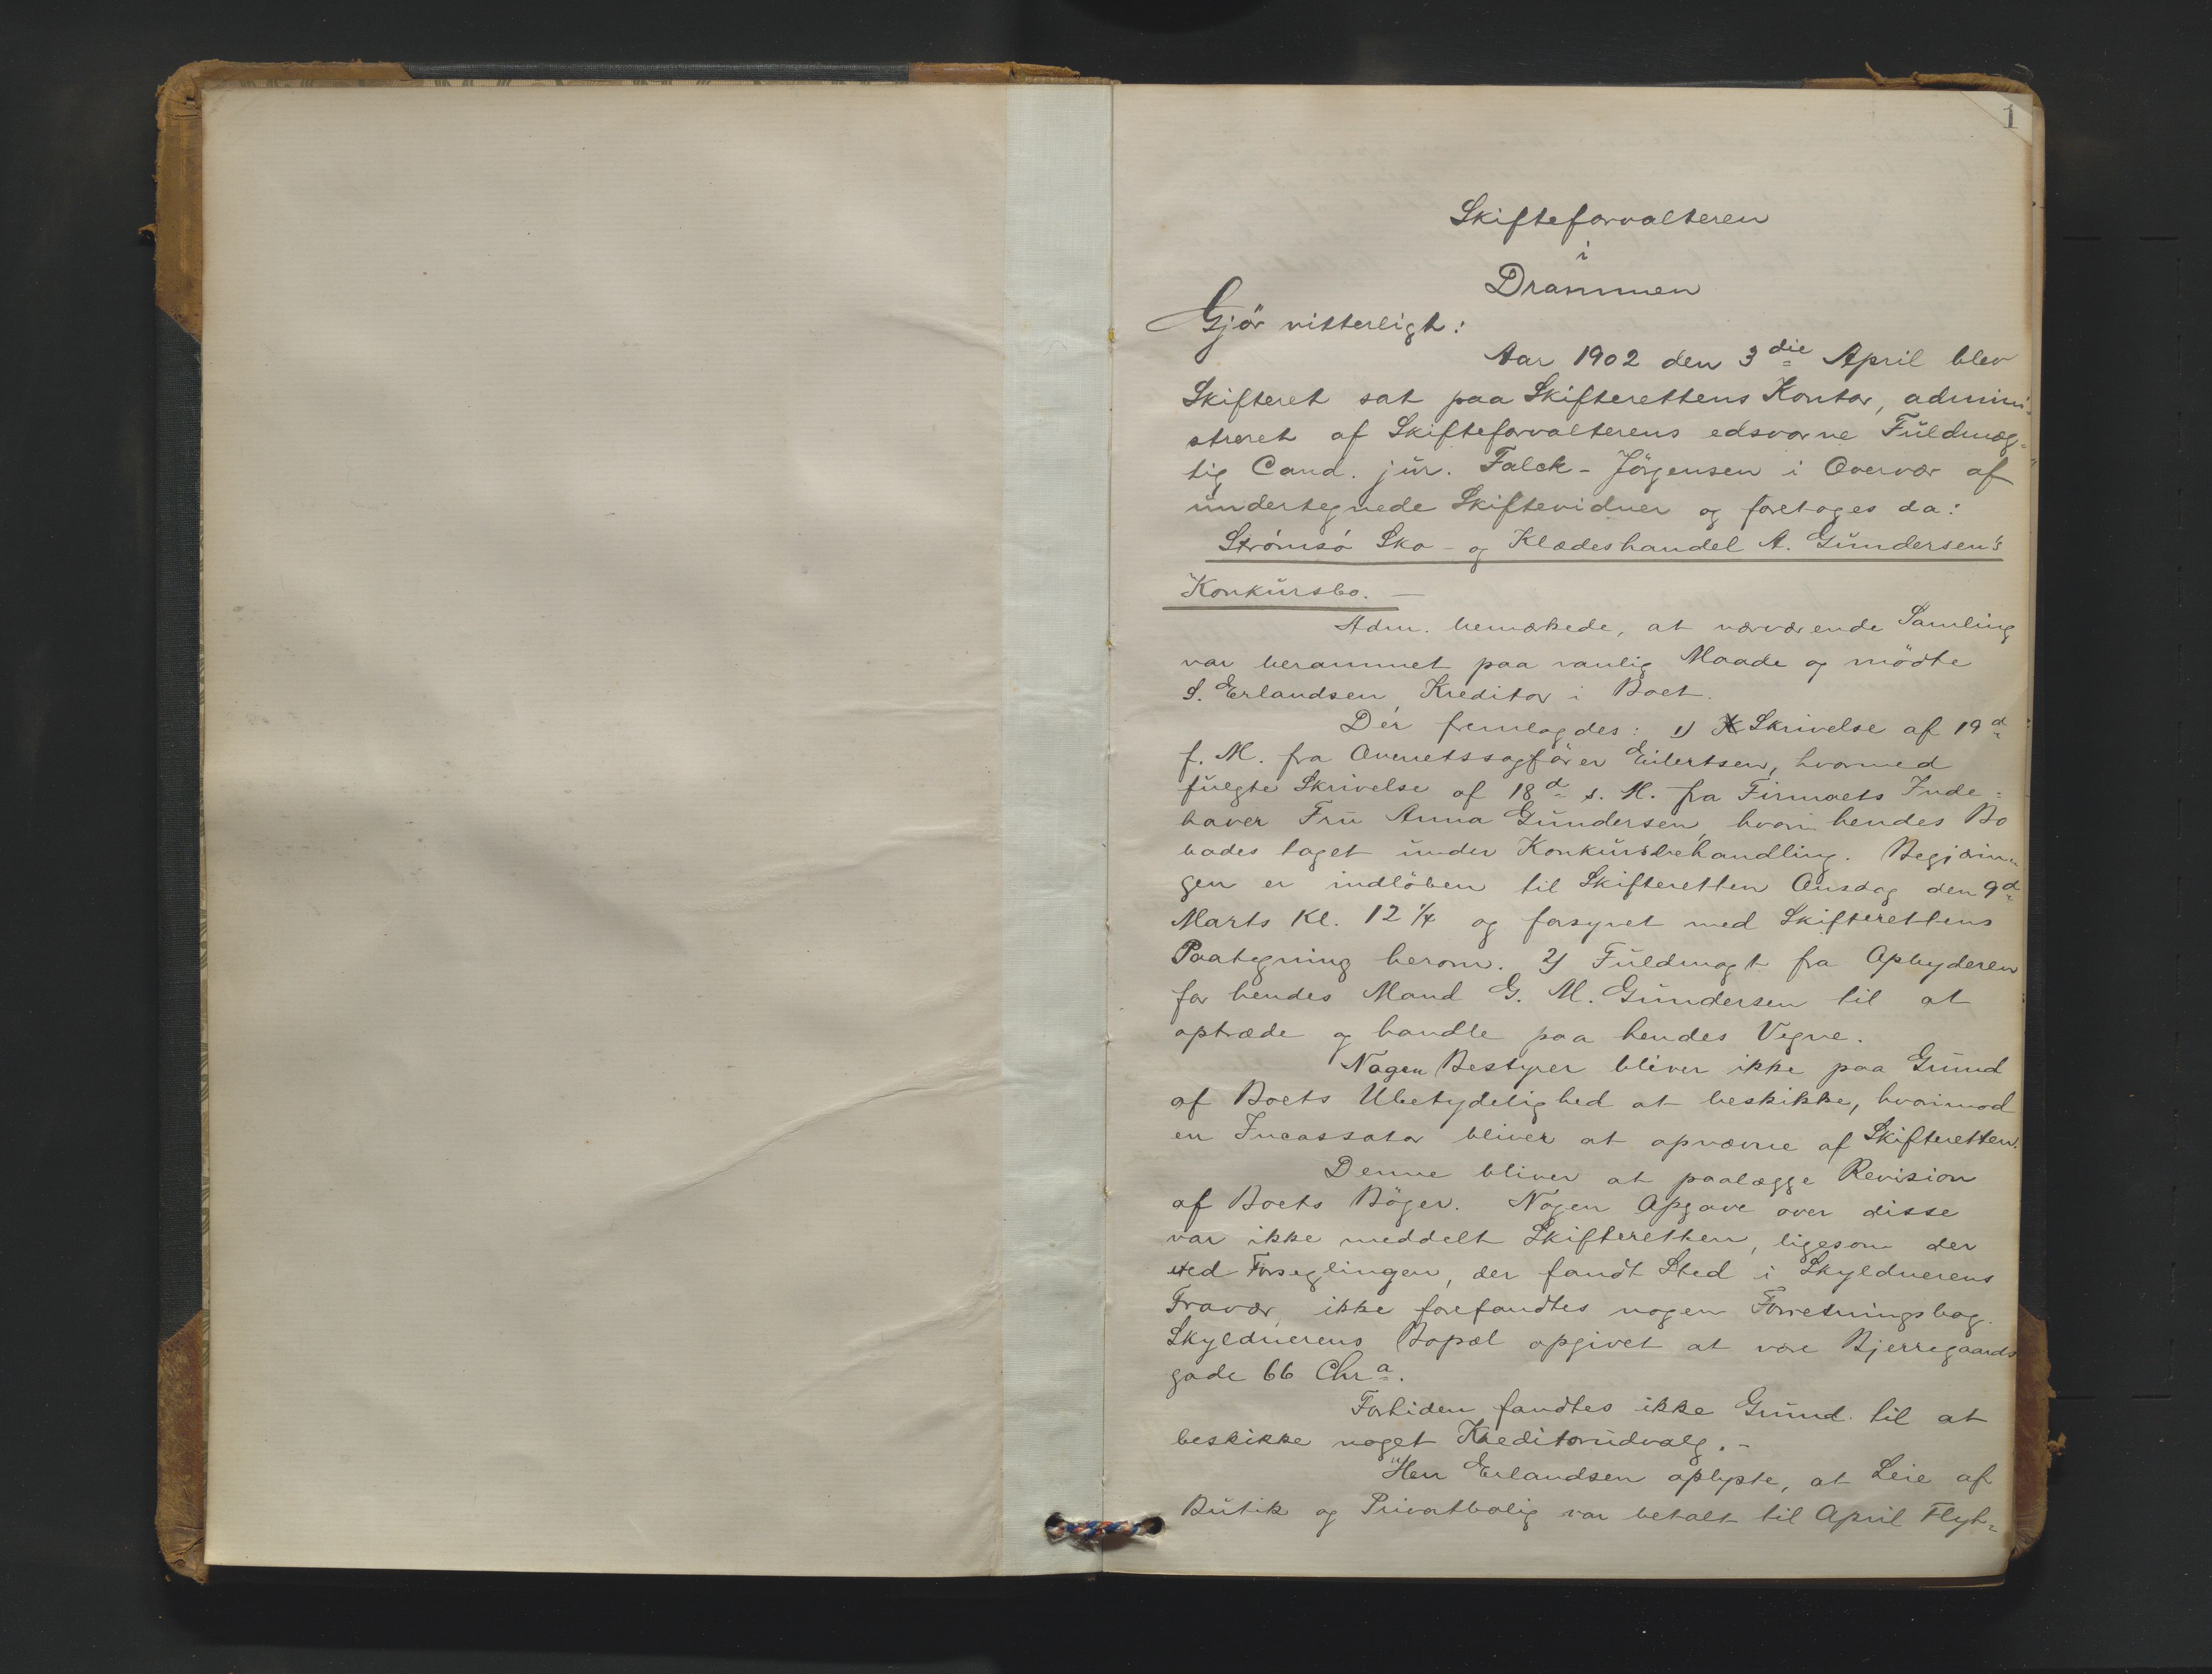 1
Skifteforvalteren
i
Drammen
Gjör vitterligt:
Aar 1902 den 3die April blev
Skifteret sat paa Skifterettens Kontor, admini-
streret af Skifteforvalterens edsvorne Fuldmæg-
tig Cand. jur. Falck-Jörgensen i Overvær af
undertegnede Skiftevidner og foretoges da:
Strömsö Sko- og Klædeshandel A. Gundersen's
Konkursbo. —
Adm. bemærkede, at nærværende Samling
var berammet paa vanlig Maade og mödte
S. Erlandsen, Kreditor i Boet.
Der fremlagdes: 1) Skrivelse af 19d
f. M. fra Overretssagförer Eilertsen, hvormed
fulgte Skrivelse af 18d s. M. fra Firmaets Inde-
haver Fru Anna Gundersen, hvori hendes Bo
bades taget under Konkursbehandling. Begjærin-
gen er indlöben til Skifteretten Onsdag den 9d
Marts Kl. 12 1/4 og forsynet med Skifterettens
Paategning herom. 2) Fuldmagt fra Opbyderen
for hendes Mand G. M. Gundersen til at
optræde og handle paa hendes Vegne.
Nogen Bestyrer bliver ikke paa Grund
af Boets Ubetydelighed at beskikke, hvorimod
en Incassator bliver at opnævne af Skifteretten.
Denne bliver at paalægge Revision
af Boets Böger. Nogen Opgave over disse
var ikke meddelt Skifteretten, ligesom der
ved Forseglingen, der fandt Sted i Skyldnerens
Fravær, ikke forefandtes nogen Forretningsbog.
Skyldnerens Bopæl opgivet at være Bjerregaards
gade 66 Chra.
Fortiden fandtes ikke Grund til at
beskikke noget Kreditorudvalg. -
Herr Erlandsen oplyste, at Leie af
Butik og Privatbolig var betalt til April Flyt-